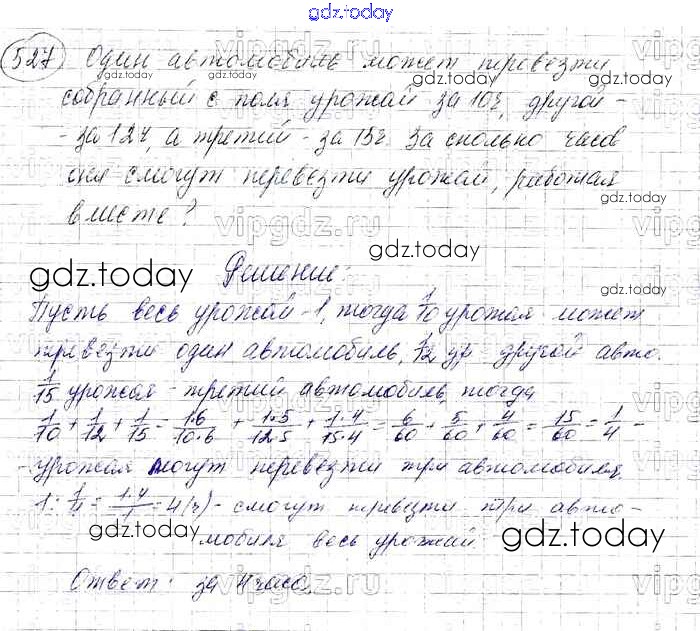 gdz.today
527 Один автомобиль может перевезти
собранный с поля урожай за 10ч, другой -
- за 12ч, а третий - за 15ч. За сколько часов
они смогут перевезти урожай, работая
вместе?
Решение:
Пусть весь урожай - 1, тогда 1/10 урожая может
перевезти один автомобиль, 1/12 ур другой авто.
1/15 урожая - третий автомобиль, тогда
1/10 + 1/12 + 1/15 = 1·6/10·6 + 1·5/12·5 + 1·4/15·4 = 6/60 + 5/60 + 4/60 = 15/60 = 1/4 -
- урожая могут перевезти три автомобиля.
1 : 1/4 = 1·4/1 = 4(ч) - смогут перевезти три авто-
мобиля весь урожай
Ответ: за 4 часа.